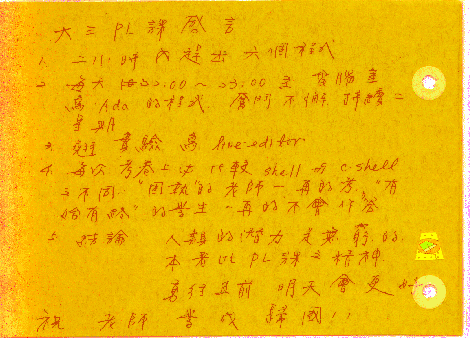 大三 PL 課感言
1. 二小時內趕出六個程式
2. 每天 22:00 ~ 23:00 去 電腦室
寫 Ada 的程式 奮鬥不懈 持續二
星期
3. 實驗寫 line-editor
4. 每次考卷上必比較 shell 與 c-shell
之不同. "固執"的老師一再的考, "有
的學生一再的不會作答
5. 結論 人類的潛力是無窮的.
本著此 PL 課之精神
勇往直前 明天會更好
祝 老師 學成歸國!!